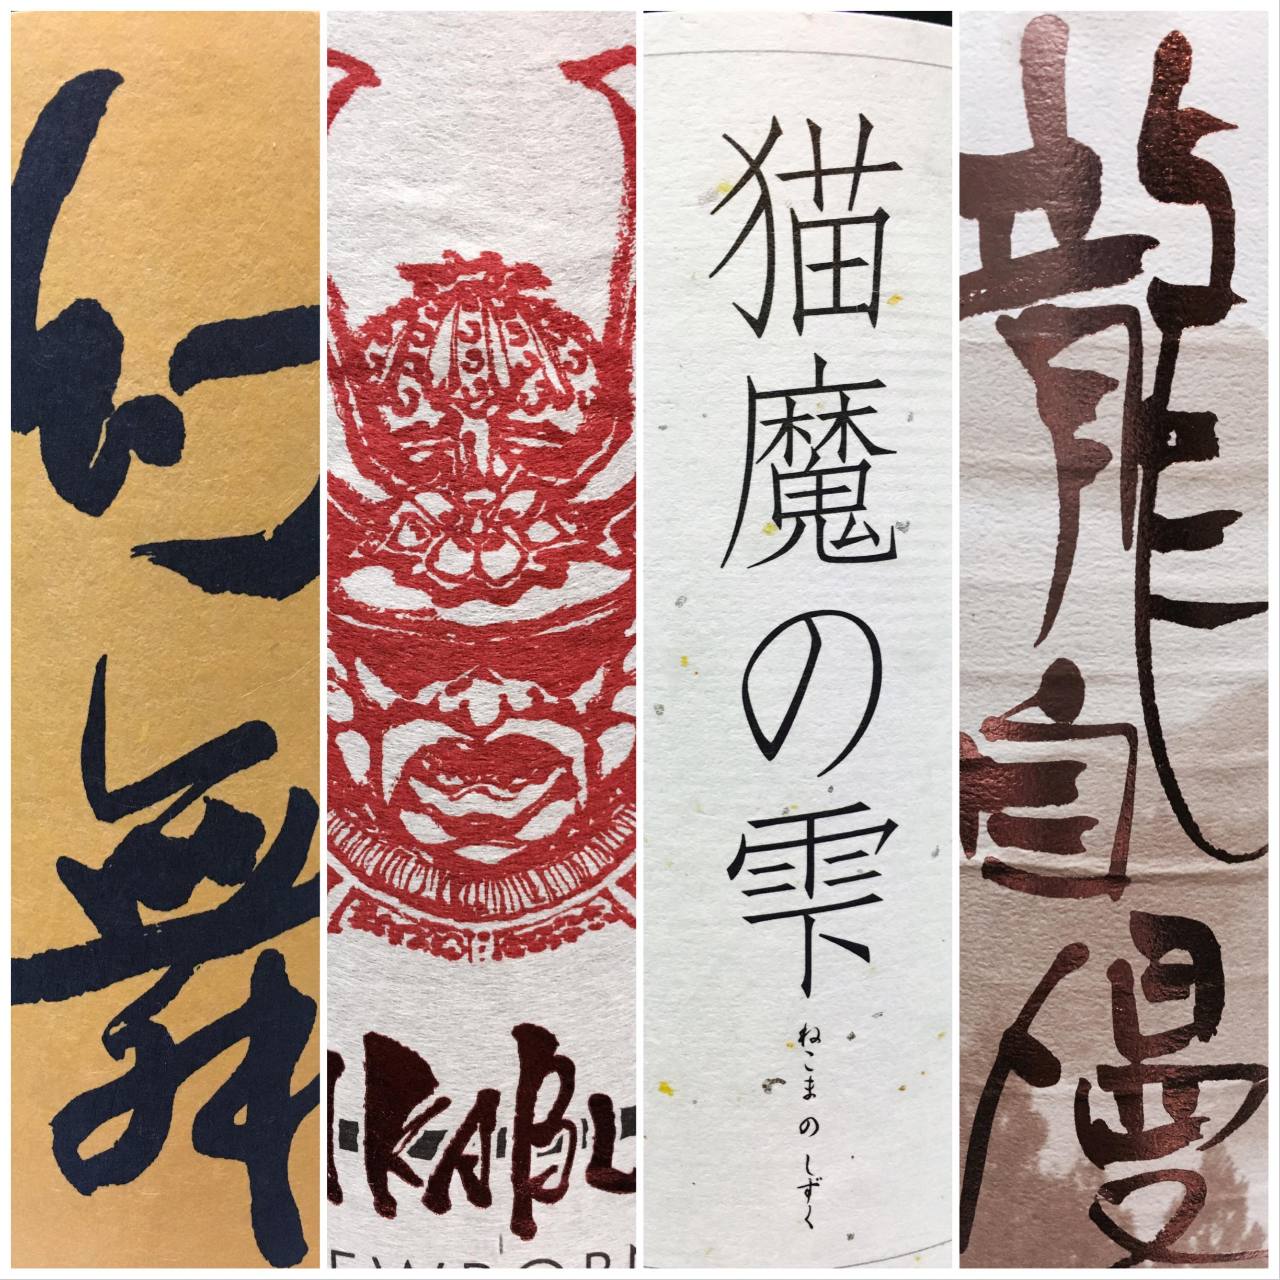 幻舞
KABU
EWBOR
猫魔の雫
ねこまのしずく
龍自慢